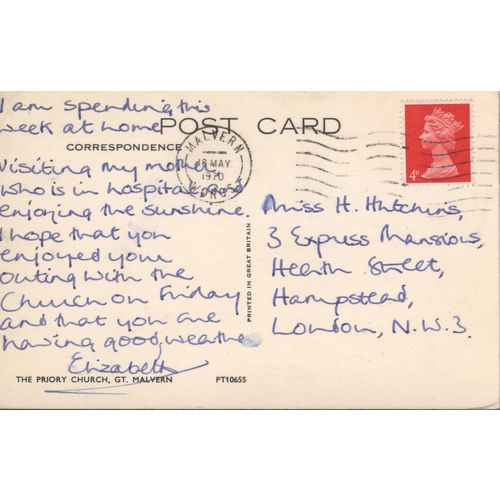 I am spending this
week at home
POST CARD
CORRESPONDENCE
Visiting my mother
who is in hospital &
enjoying the sunshine.
I hope that you
enjoyed your
outing with the
Church on Friday
and that you are
having good weather
Elizabeth
MALVERN
18 MAY
1970
WORCS
4D
Miss H. Hutchins,
3 Express Mansions,
Heath Street,
Hampstead,
London, N.W.3.
PRINTED IN GREAT BRITAIN
THE PRIORY CHURCH, GT. MALVERN
PT10655